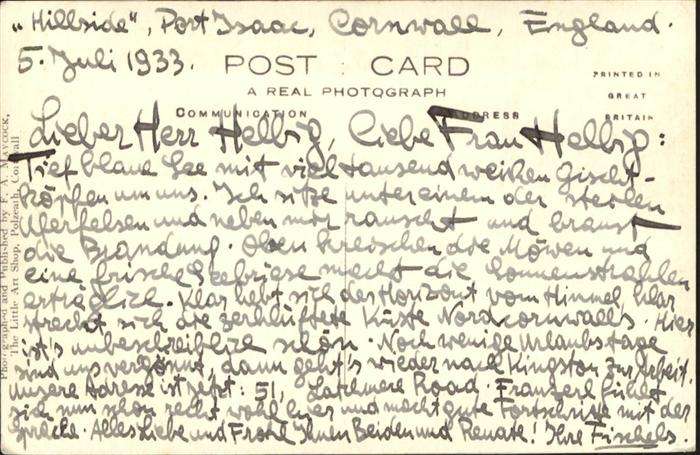 "Hillside", Port Isaac, Cornwall, England.
5. Juli 1933.
POST CARD
A REAL PHOTOGRAPH
COMMUNICATION
ADDRESS
PRINTED IN
GREAT
BRITAIN
Lieber Herr Helbig, liebe Frau Helbig:
Tief blaue See mit viel tausend weißen Gischt-
köpfen um uns. Ich sitze unter einem der steilen
Uferfelsen und neben mir rauscht und braust
die Brandung. Oben kreischen die Möwen und
eine frische Seebriese macht die Sonnenstrahlen
erträglich. Klar hebt sich der Horizont vom Himmel, klar
streckt sich die zerklüftete Küste Nordcornwalls. Hier
ist's unbeschreiblich schön. Noch wenige Urlaubstage
sind uns vergönnt, dann geht's wieder nach Kingston zur Arbeit.
Unsere Adresse ist jetzt: 51, Latchmere Road. Franzerl fühlt
sich nun schon recht wohl hier und macht gute Fortschritte mit der
Sprache. Alles Liebe und Frohe Ihnen Beiden und Renate! Ihre Fischels.
Photographed and Published by F. A. Maycock,
The Little Art Shop, Polzeath, Cornwall